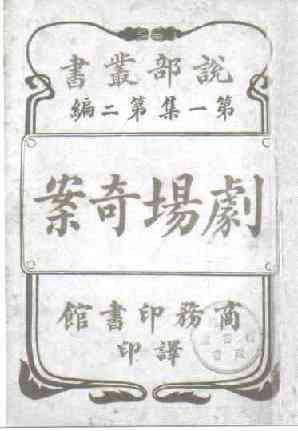 說部叢書
第一集第二編
劇場奇案
商務印書館
譯印